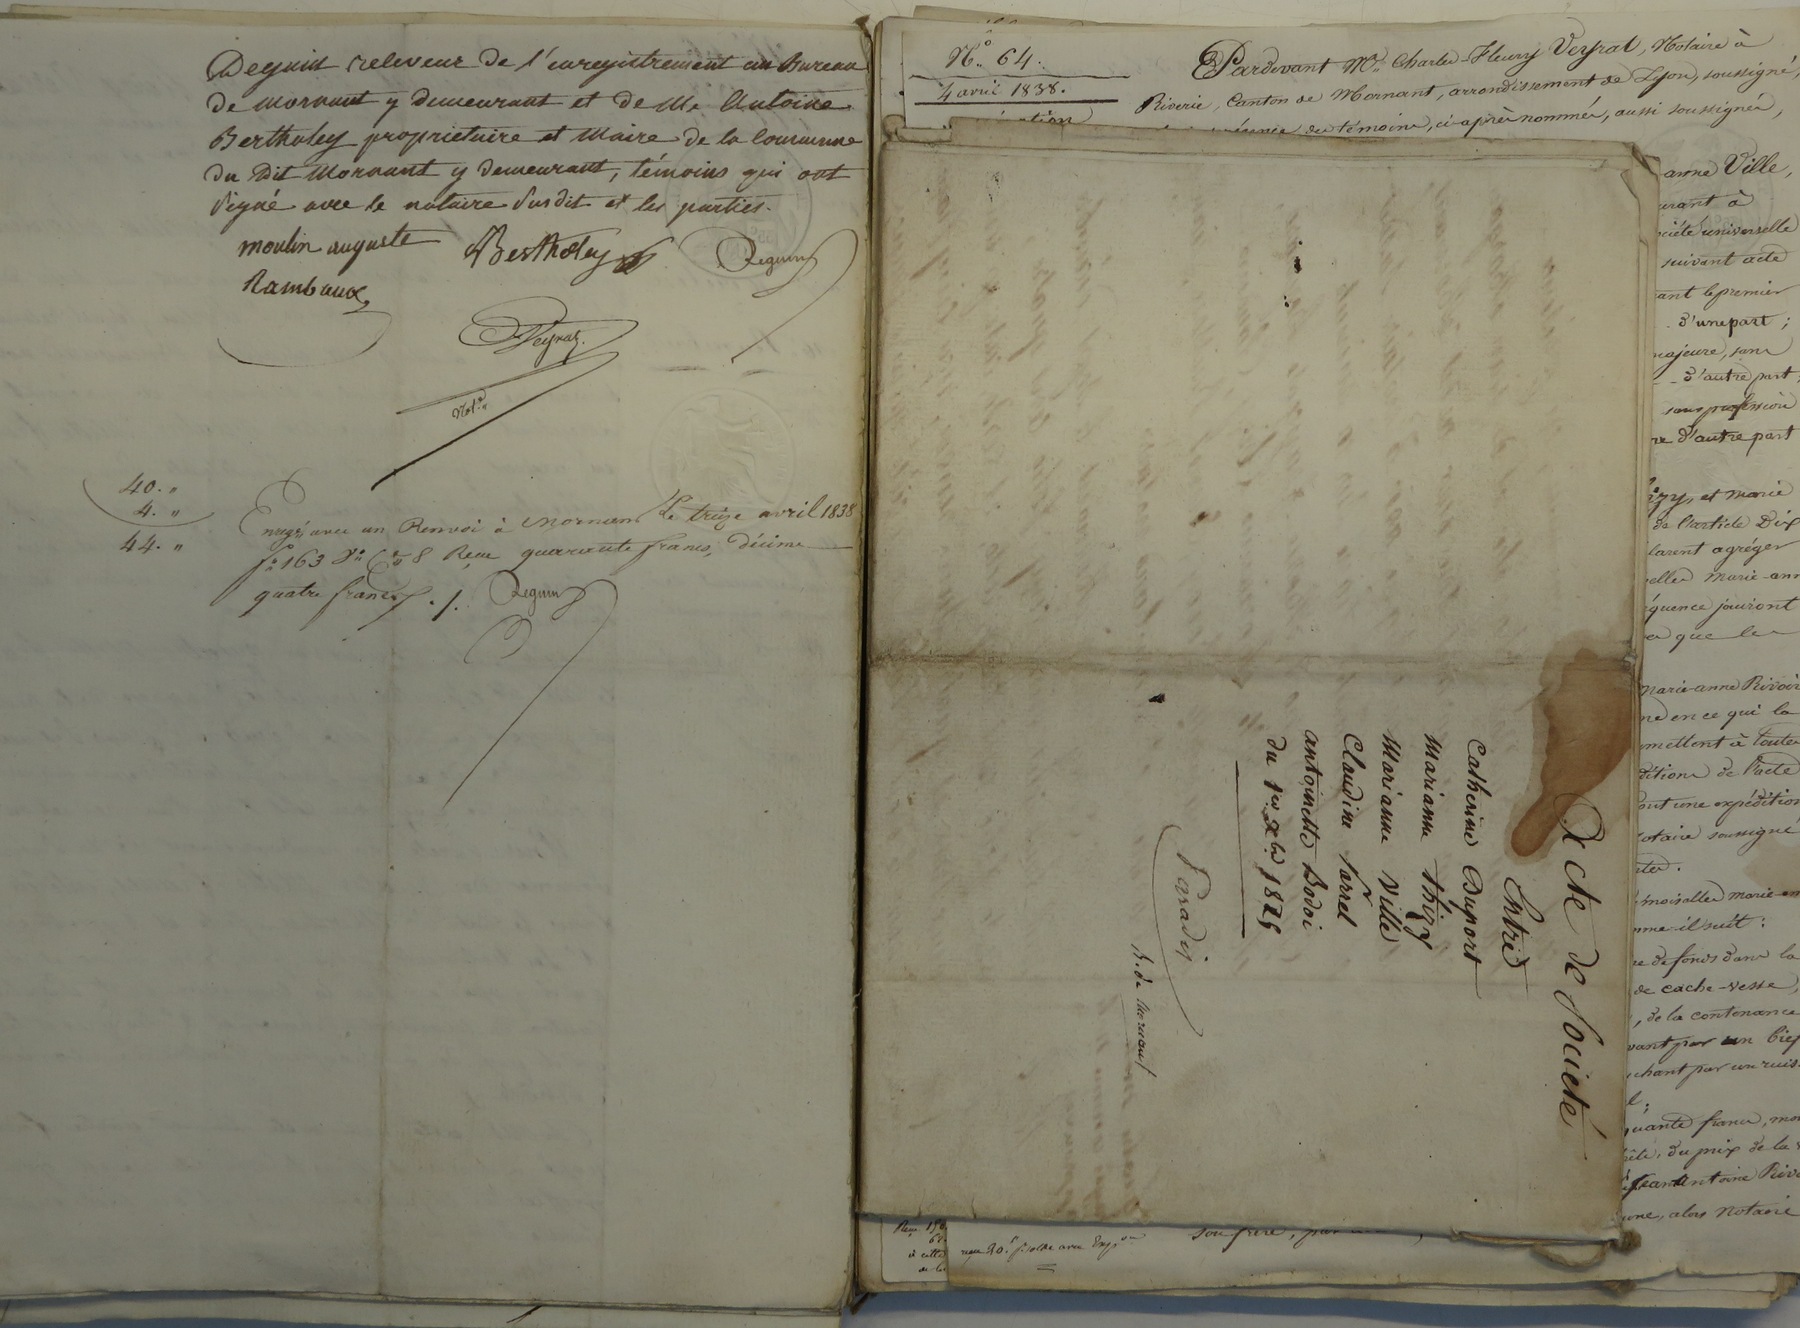 Reguin releveur de l'enregistrement au Bureau
de mornant y demeurant et de Mr. Antoine
Bertholey proprietaire et Maire de la Commune
du dit Mornant y demeurant, témoins qui ont
signé avec le notaire susdit et les parties.
moulin auguste Bertholey Reguin
Rambaux
Veyrat.
Not.re
40. "
4. "
44. "
Enregé avec un Renvoi à Mornant Le treize avril 1838
fo. 163 Vo. Co. 8 Reçu quarante francs, décime
quatre francs ./. Reguin
No. 64.
4 avril 1838.
Pardevant Me. Charles-Fleury Veyrat, Notaire à
Riverie, Canton de Mornant, arrondissement de Lyon, soussigné,
présence des témoins, ci-après nommés, aussi soussignés,
anne Ville,
urant à
ciété universelle
suivant acte
ant le premier
d'une part ;
majeure, sans
d'autre part ;
sans profession
re d'autre part
izy, et marie
de l'article Dix
larent agréger
elles marie-ann
équence jouiront
que les
Marie-anne Rivoir
ne en ce qui la
mettent à toutes
ditions de l'acte
ont une expédition
otaire soussigné
moiselle marie-an
mme il suit :
re de fonds dans la
de cache-vesse,
, de la contenance
vant par un bief
chant par un ruis
quante francs, mon
du prix de la
Jean Antoine Rivo
, alors Notaire
Acte de Société
Entre
Catherine Duport
Marianne Thizy
Marianne Ville
Claudine Farrel
antoinette Bodoi
du 1er Xbre 1825
Paradis
h. de mornant
son frère, par